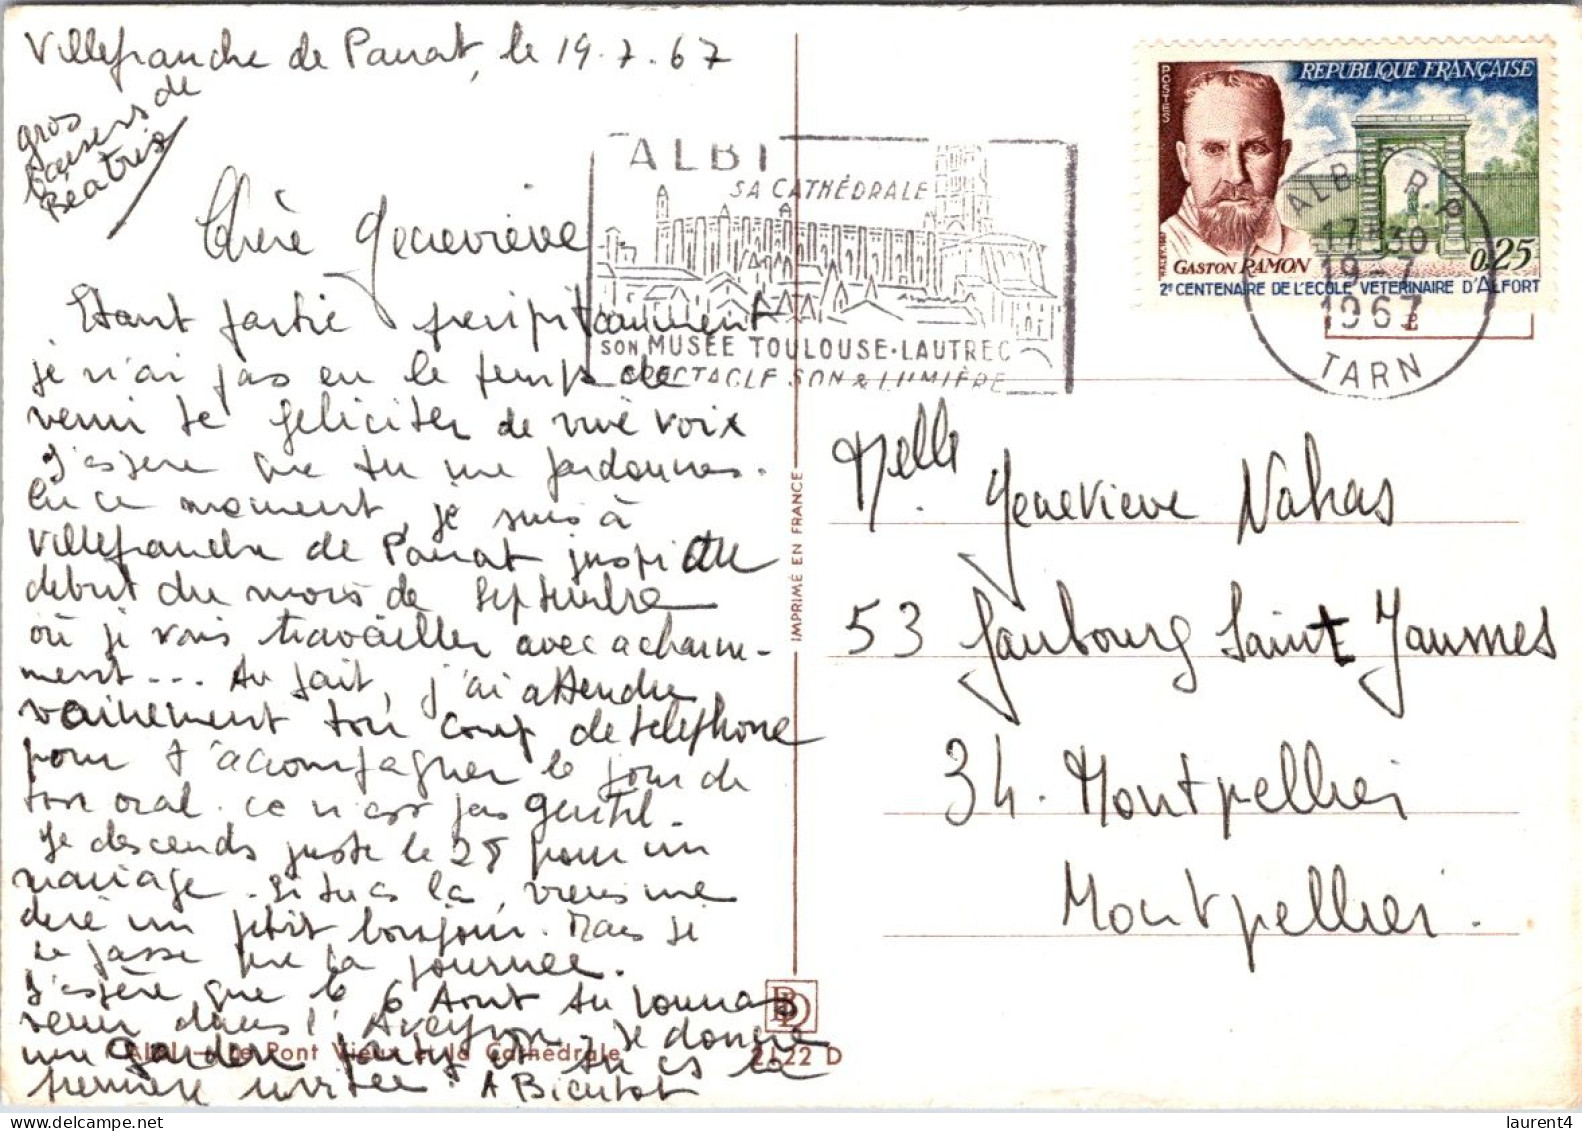 Villefranche de Panat, le 19.7.67
gros
baisers de
Béatrix
Chère Geneviève
Etant partie precipitamment
je n'ai pas eu le temps de
venir te feliciter de vive voix
J'espère que tu me pardonnes.
En ce moment, je suis à
Villefranche de Panat jusqu'au
debut du mois de septembre
où je vais travailler avec acharne-
ment... Au fait, j'ai attendu
vainement ton coup de telephone
pour t'accompagner le jour de
ton oral. Ce n'est pas gentil.
Je descends juste le 28 pour un
mariage. Si tu es là, viens me
dire un petit bonjour. Mais je
ne passe que la journee.
J'espère que le 6 Aout tu pourras
venir dans l'Aveyron. Je donne
une garden party et tu es la
première invitée. A Bientot
ALBI
SA CATHÉDRALE
SON MUSÉE TOULOUSE-LAUTREC
SPECTACLE SON & LUMIÈRE
POSTES
REPUBLIQUE FRANÇAISE
GASTON RAMON
0,25
2e CENTENAIRE DE L'ECOLE VETERINAIRE D'ALFORT
ALBI R.P
17H30
19-7
1967
TARN
Melle Geneviève Nahas
53 faubourg Saint Jaumes
34. Montpellier
Montpellier.
IMPRIMÉ EN FRANCE
Albi - Le Pont Vieux et la Cathédrale
2122 D
laurent4